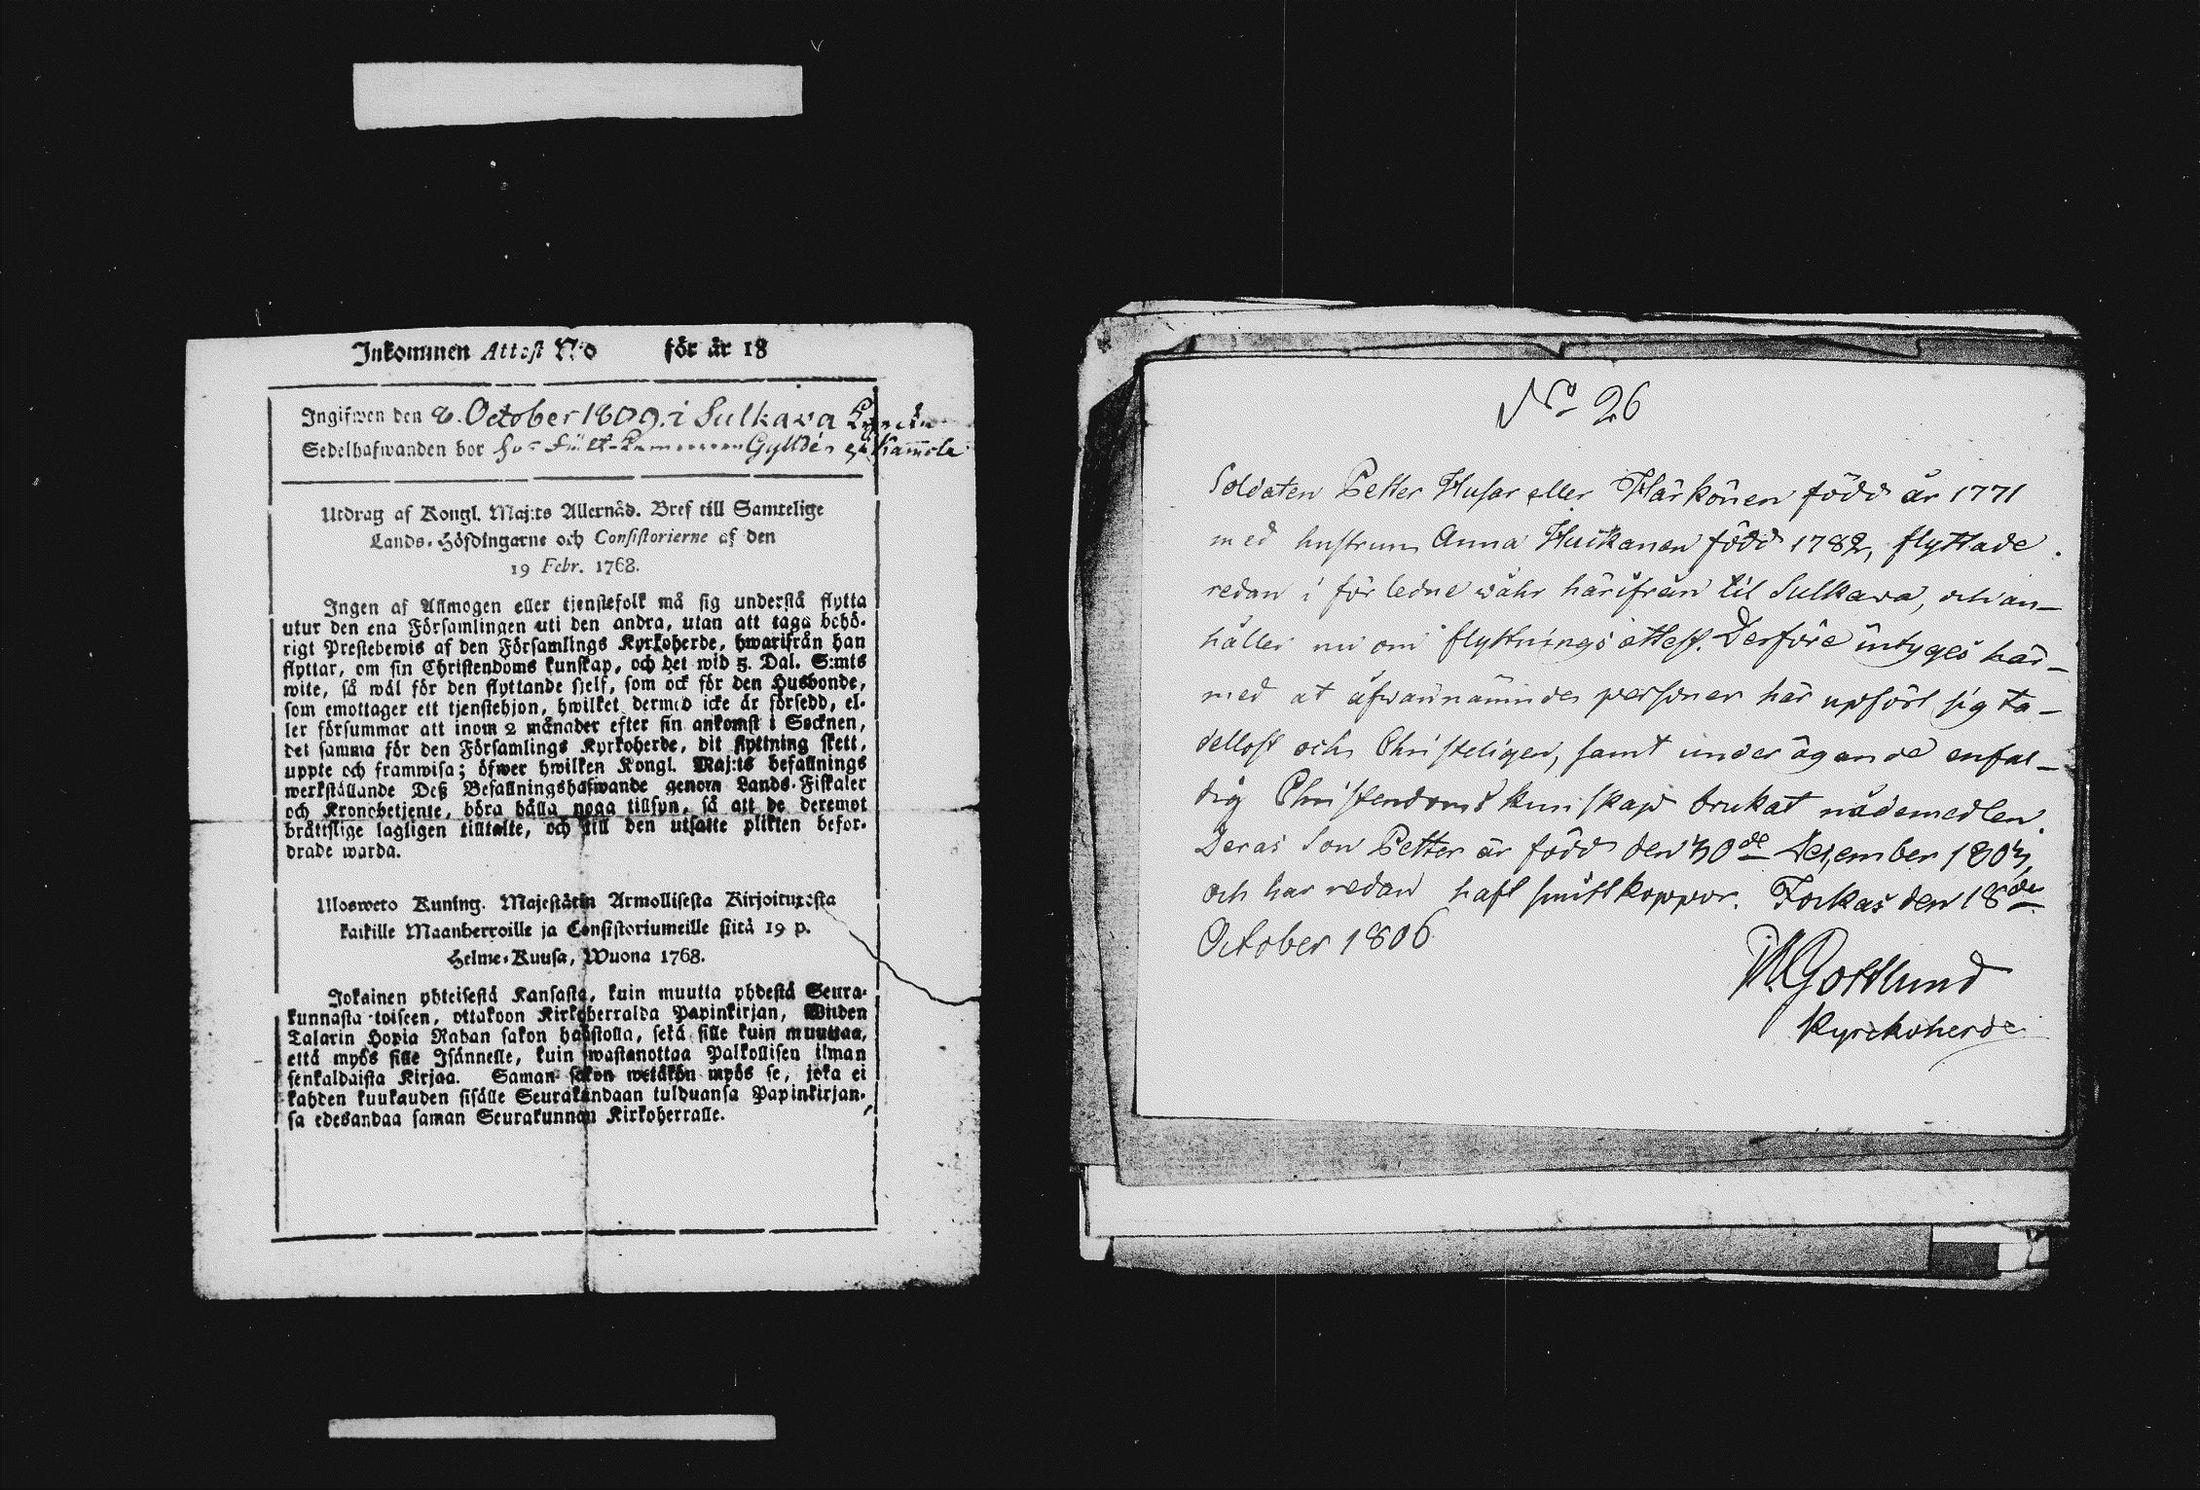 Inkommen Attest N:o för år 18
Ingifwen den 8. October 1809. i Sulkava
Sedelhafwanden bor hos Gylldén
Utdrag af Kongl. Maj:ts Allernåd. Bref till Samtelige
Lands-Höfdingarne och Consistorierne af den
19 Febr. 1768.
Ingen af Allmogen eller tjenstefolk må sig understå flytta
utur den ena Församlingen uti den andra, utan att taga behö-
rigt Prestebewis af den Församlings Kyrkoherde, hwarifrån han
flyttar, om sin Christendoms kunskap, och det wid 5. Dal. S:mts
wite, så wäl för den flyttande sjelf, som ock för den Husbonde,
som emottager ett tjenstehjon, hwilket dermed icke är försedd, el-
ler försummar att inom 2 månader efter sin ankomst i Socknen,
det samma för den Församlings Kyrkoherde, dit flyttning skett,
uppte och framwisa; öfwer hwilken Kongl. Maj:ts befallnings
werkställande Deß Befallningshafwande genom Lands-Fiskaler
och Kronobetjente, böra hålla noga tillsyn, så att de deremot
bråttslige lagligen tilltalte, och till den utsatte plikten befor-
drade warda.
Ulosweto Kuning. Majestätin Armollisesta Kirjoituxesta
kaikille Maanherroille ja Consistoriumeille siitä 19 p.
Helme-Kuusa, Wuona 1768.
Jokainen yhteisestä Kansasta, kuin muutta yhdestä Seura-
kunnasta toiseen, ottakoon Kirkoherralda Papinkirjan, Wiiden
Talarin Hopia Rahan sakon haastolla, sekä sille kuin muuttaa,
että myös sille Isännelle, kuin wastanottaa Palkollisen ilman
senkaldaista Kirjaa. Saman sakon wetäkön myös se, joka ei
kahden kuukauden sisälle Seurakundaan tulduansa Papinkirjan-
sa edesandaa saman Seurakunnan Kirkoherralle.
No 26
Soldaten Petter Husar eller Härkönen född år 1771
med hustrun Anna Huikanen född 1782, flyttade
redan i förledne wåhr härifrån til Sulkava, och an-
håller nu om flyttnings attest. Derföre intyges här-
med at äfwannämnde personer här upfört sig ta-
dellost och Christeligen, samt under ägande enfal-
dig Christendoms kunskap brukat nådemedlen.
Deras Son Petter är född den 30de December 1803,
och har redan haft smittkoppor. Jockas den 18de
October 1806
M. Gottlund
Kyrckoherde